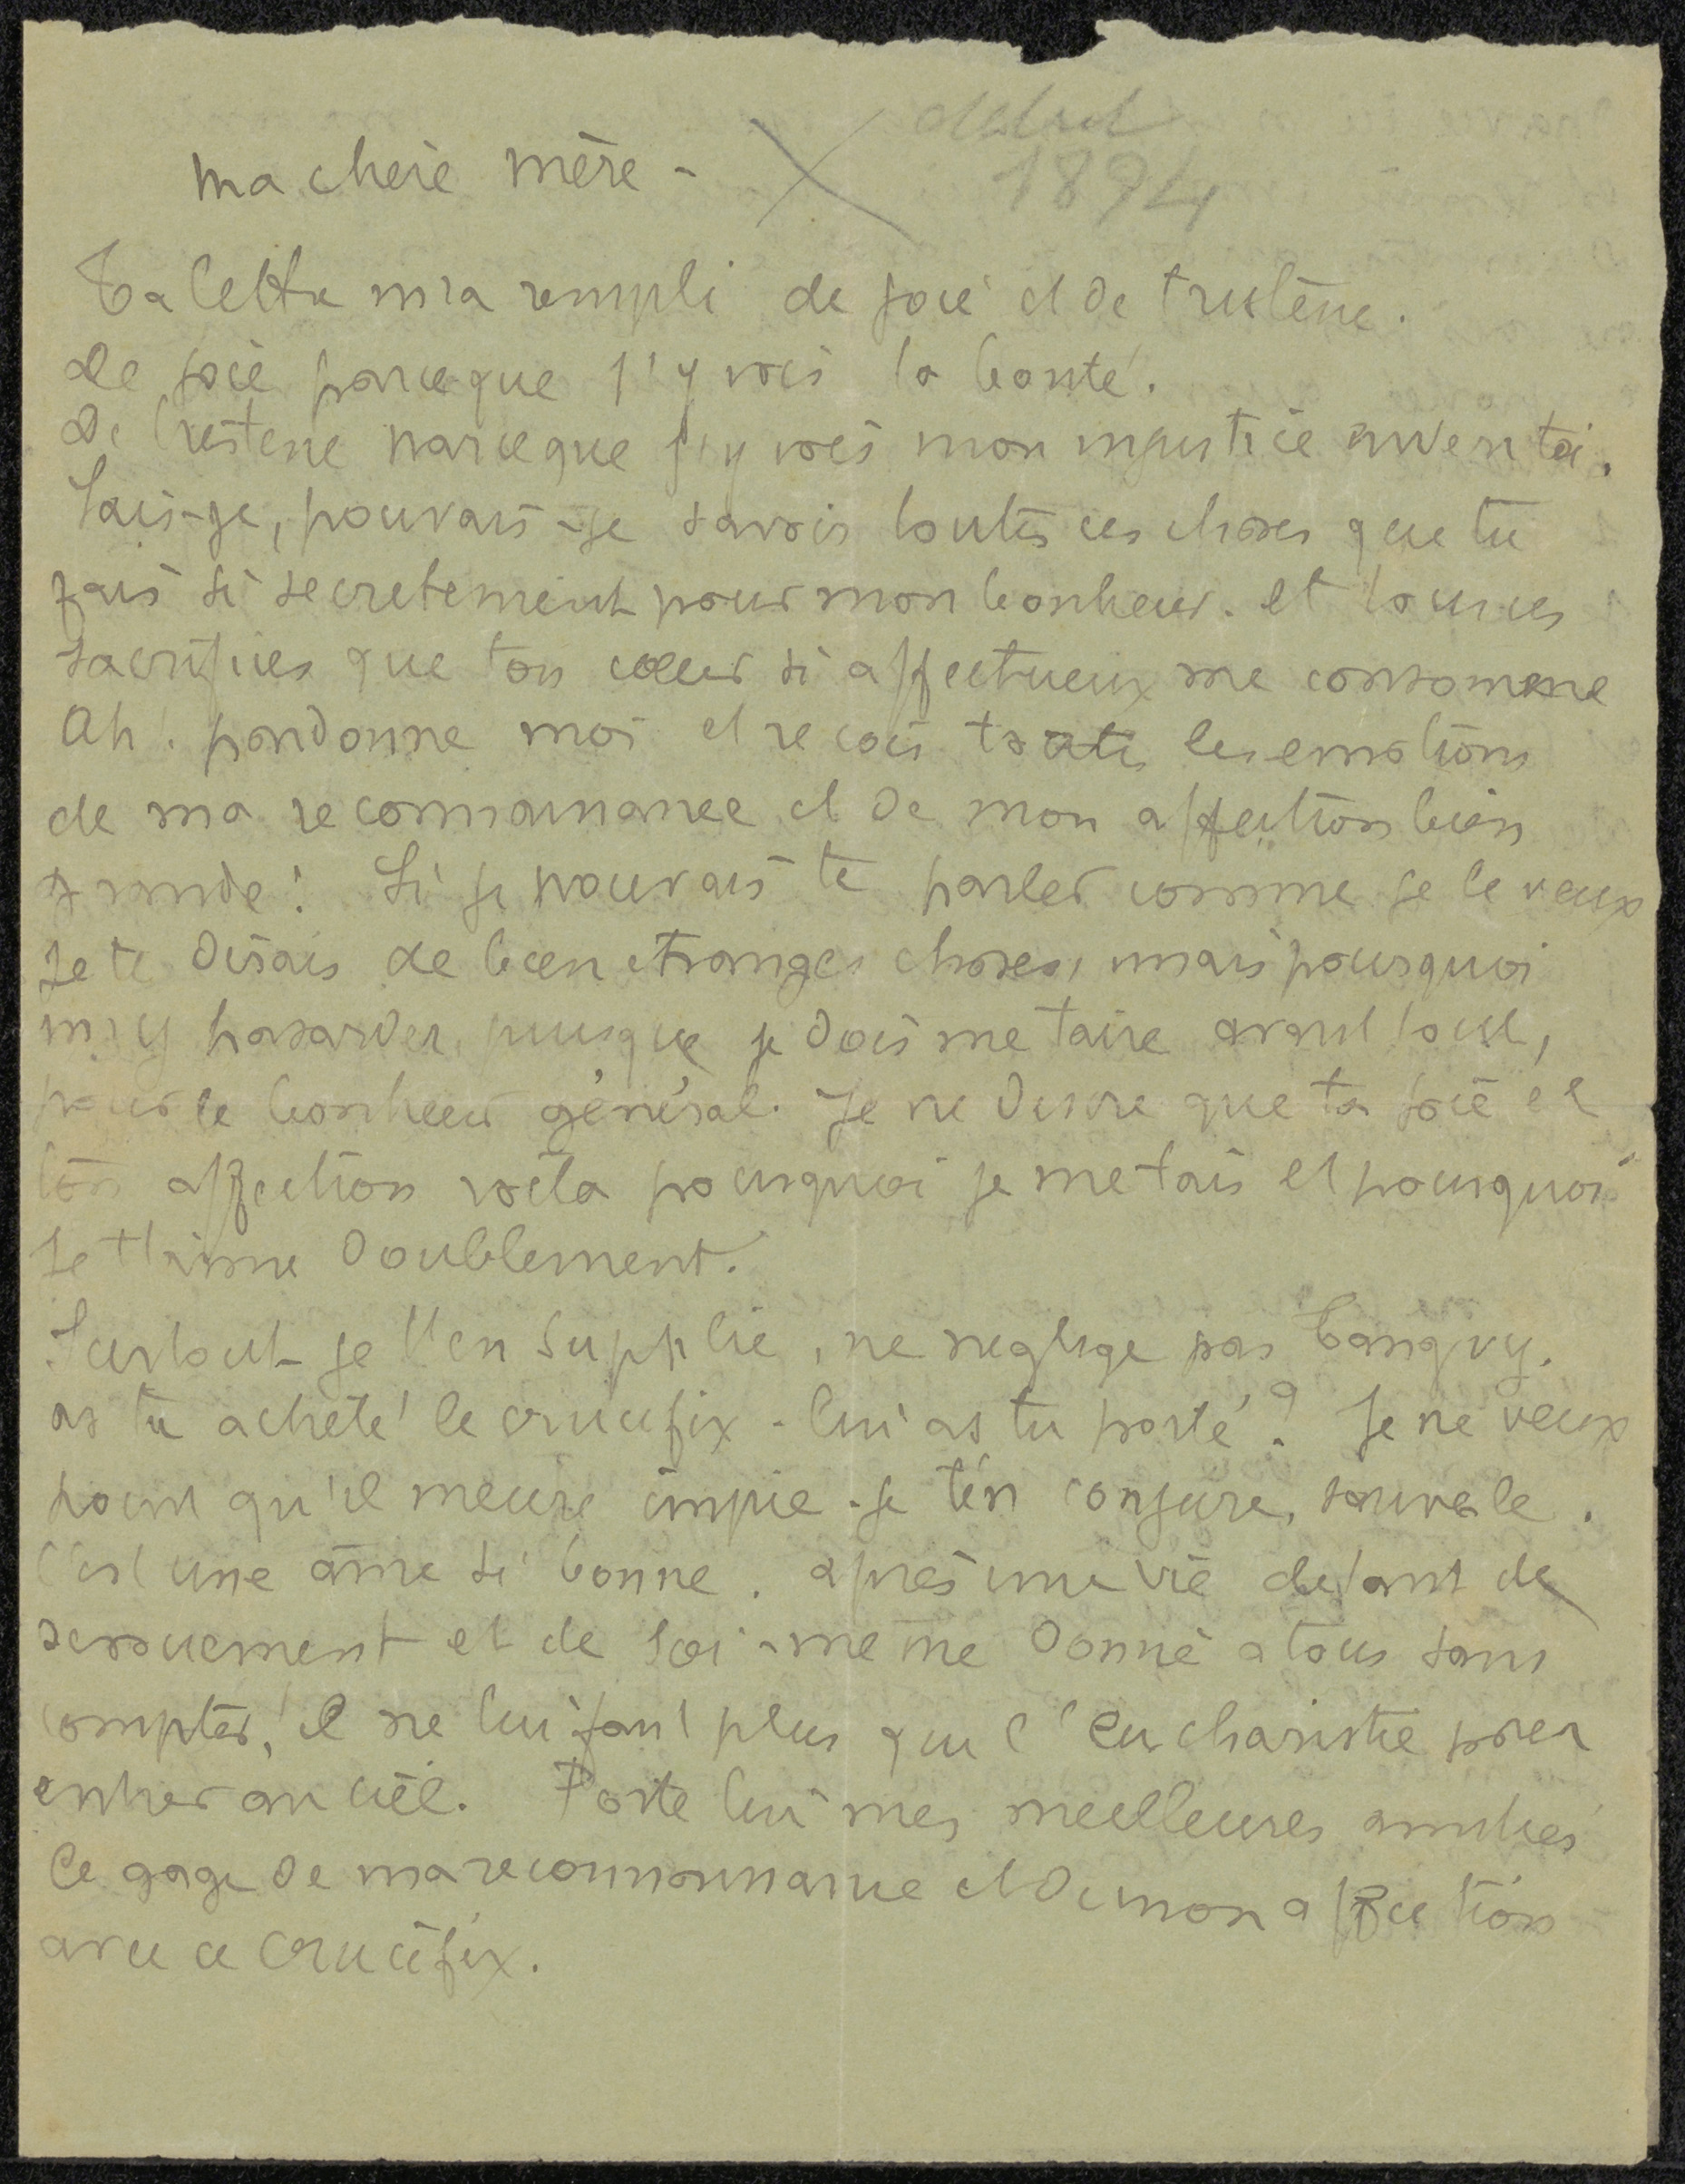 début
1894
Ma chere mère -
Ta lettre m'a rempli de joie et de tristesse.
De joie parceque j'y vois ta bonté.
De tristesse parceque j'y vois mon injustice envers toi.
Sais-je, pouvais-je savoir toutes ces choses que tu
fais si secretement pour mon bonheur. et tous ces
sacrifices que ton cœur si affectueux me consomme
Ah! pardonne moi et recois toute les emotions
de ma reconnaissance et de mon affection bien
grande! Si je pouvais te parler comme je le veux
je te dirais de bien etranges choses, mais pourquoi
m'y hasarder puisque je dois me taire avant tout,
pour le bonheur général. Je ne desire que ta joie et
ton affection voila pourquoi je me tais et pourquoi
je t'aime doublement.
Surtout je t'en supplie, ne neglige pas Tanguy.
as tu acheté le crucifix - lui as tu porté? Je ne veux
point qu'il meure impie - je t'en conjure, sauve le.
C'est une âme si bonne. après une vie de tant de
devouement et de soi-meme donné a tous sans
compter, il ne lui faut plus que l'Eucharistie pour
entrer au ciel. Porte lui mes meilleures amitiés
Ce gage de ma reconnaissance et de mon affection
avec ce crucifix.